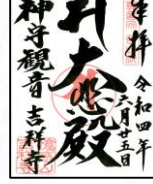 奉拝
令和四年
月廿五日
大悲殿
神守観音 吉祥寺